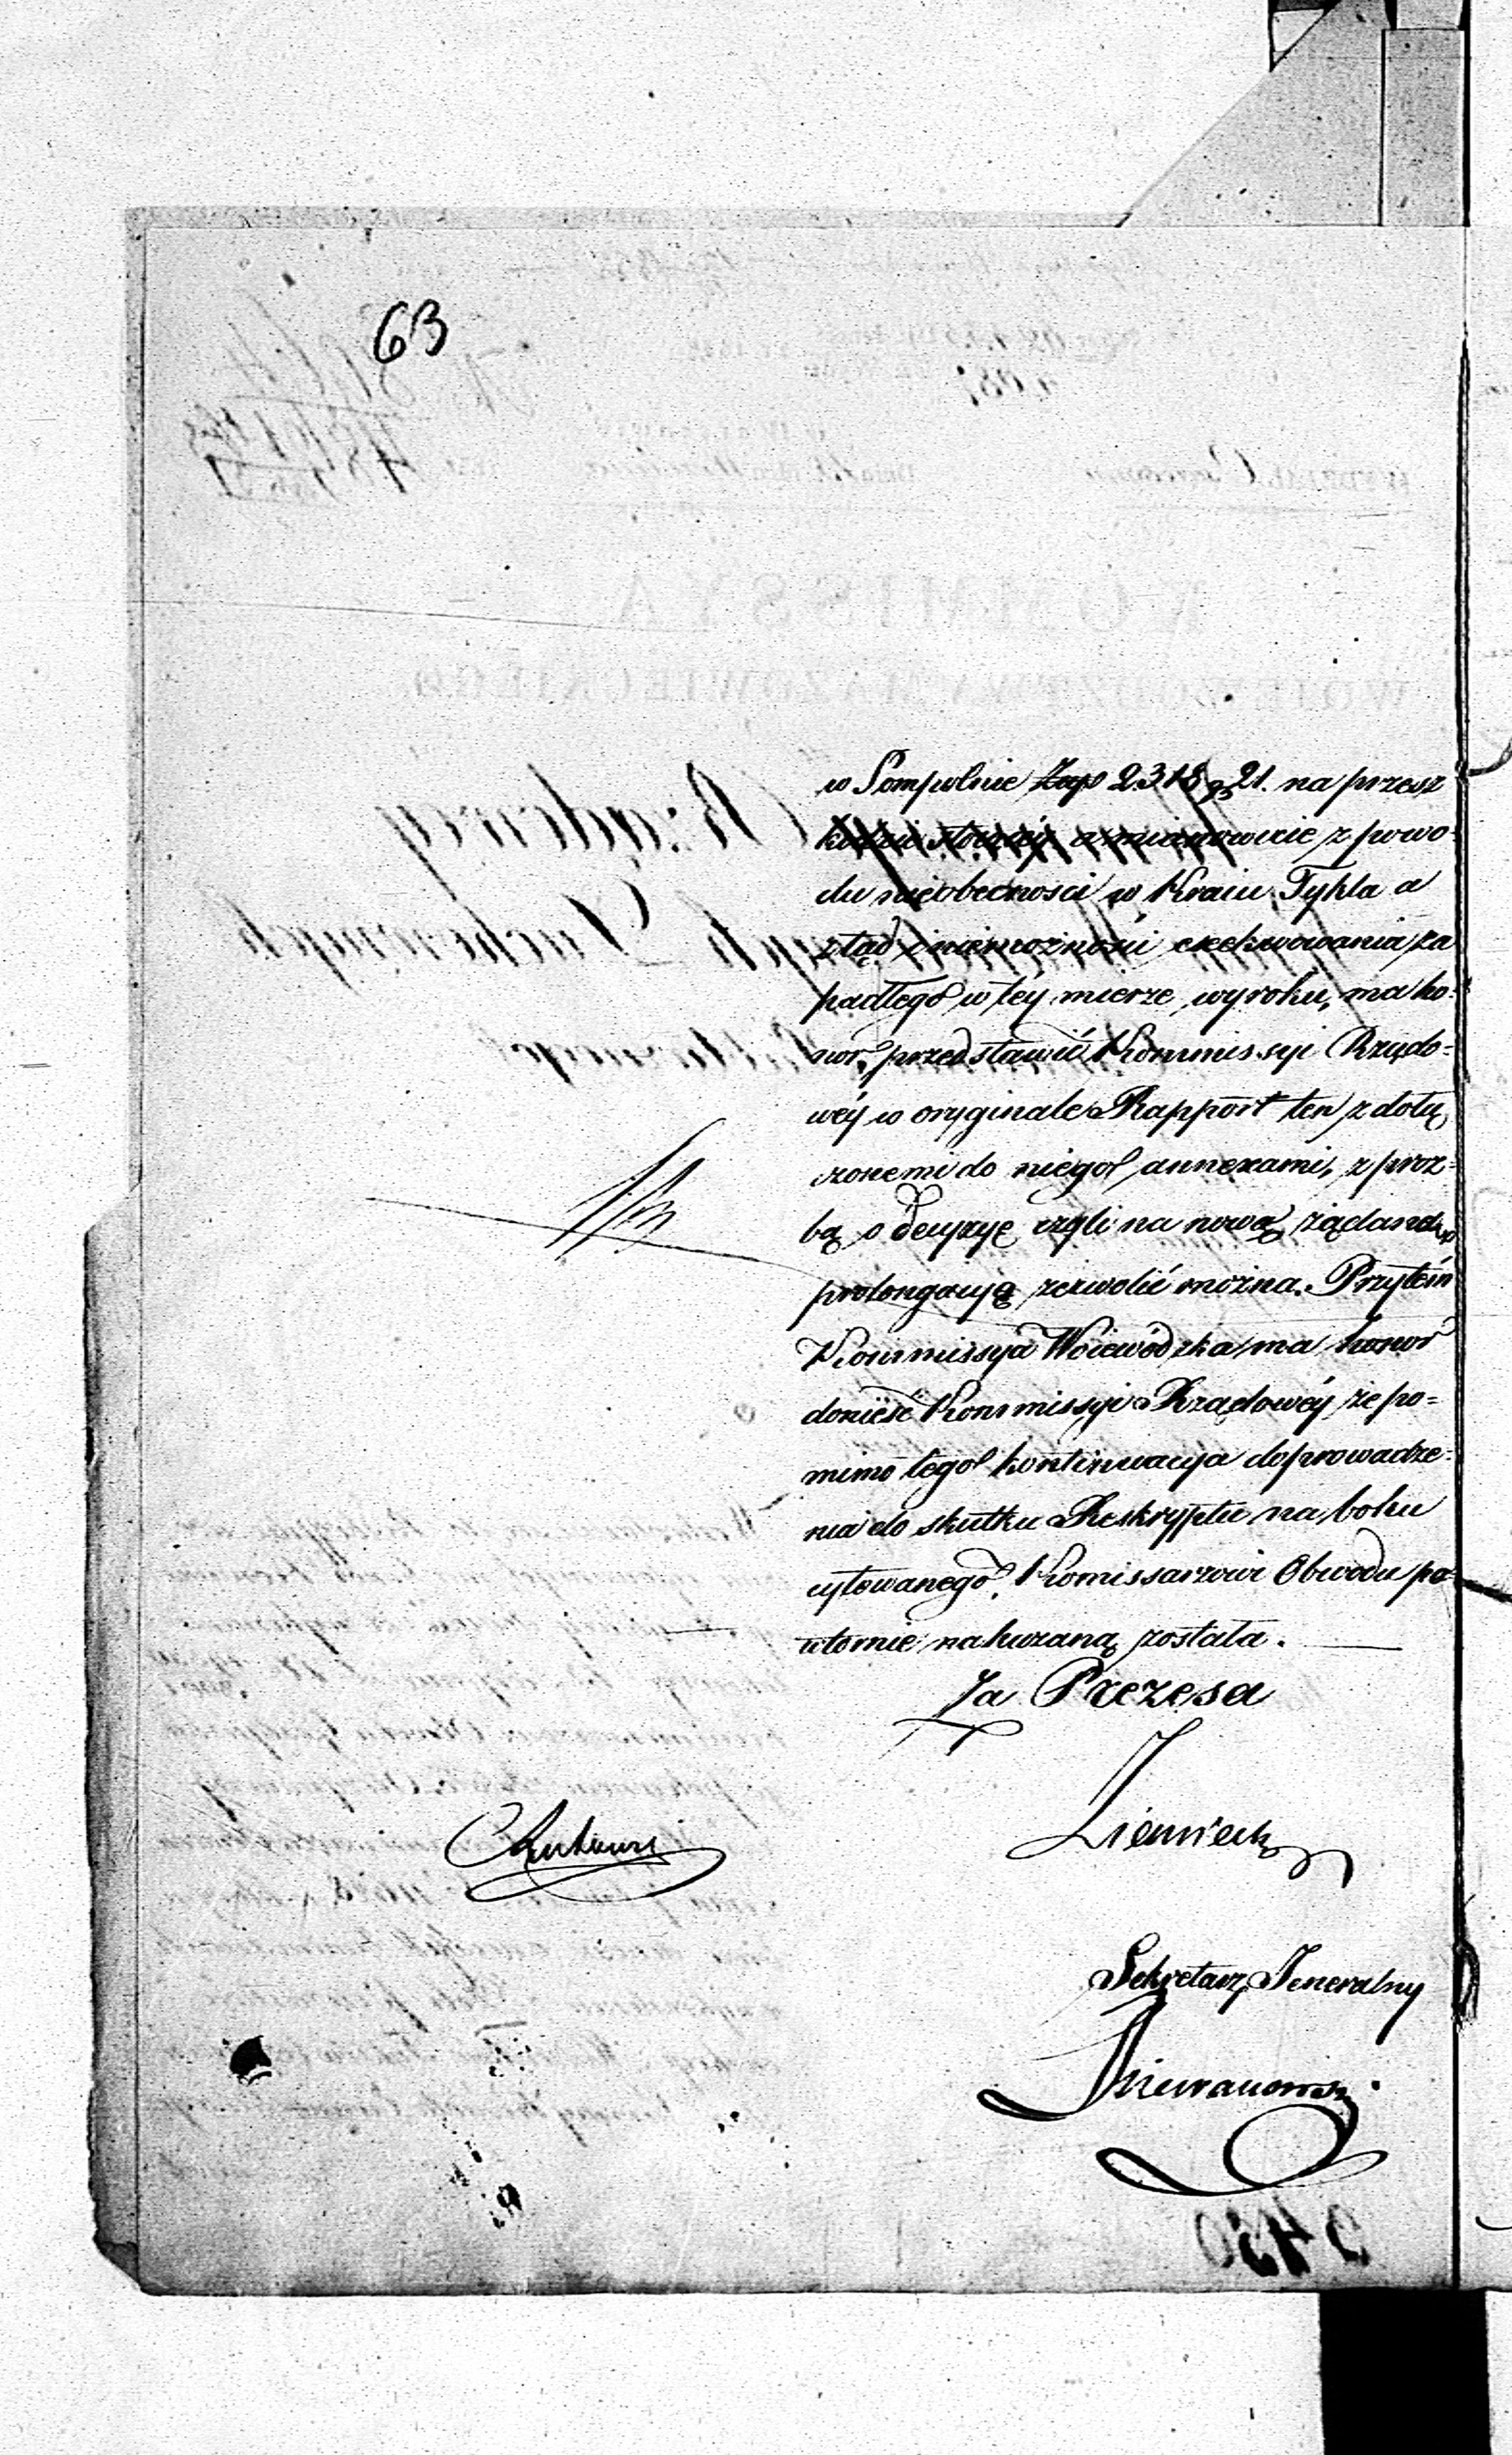 63
w Sompolnie Złp 2318 gr 21. na przesz
kodzie stoiącéy a mianowicie z powo-
du nieobecności w Kraiu Tykla a
ztąd i niemożności exekwowania za
padłego w tey mierze wyroku, ma ho-
nor przedstawić Kommissyi Rządo=
wéy w oryginale Rapport ten z dołą
czonemi do niego annexami, z proź=
bą o decyzyę czyli na nową żądaną
prolongacyą zezwolić można. Przytém
Kommissya Woiewódzka ma honor
donieść Kommissyi Rządowéy, że po=
mimo tego kontinuacya doprowadze-
nia do skutku Reskryptu na boku
cytowanego, Komissarzowi Obwodu po
wtornie nakazaną została.
Za Prezesa
Sekretarz Jeneralny